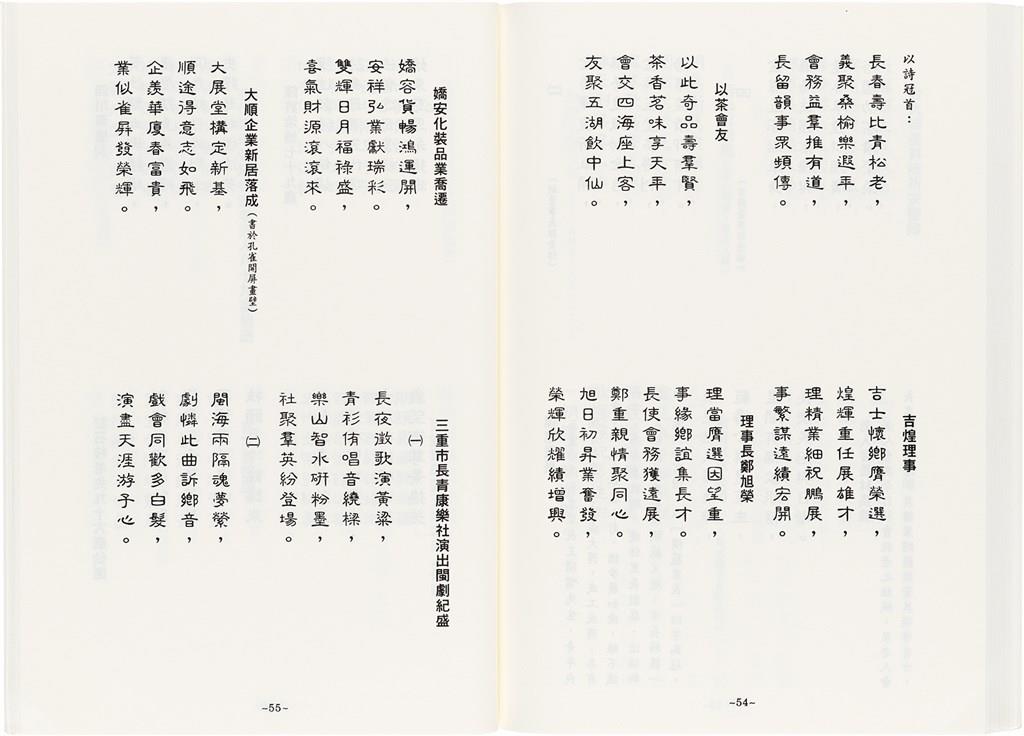 以詩冠首：
長春壽比青松老，
義聚桑榆樂遐年，
會務益羣推有道，
長留韻事眾頻傳。
以茶會友
以此奇品壽羣賢，
茶香茗味享天年，
會交四海座上客，
友聚五湖飲中仙。
吉煌理事
吉士懷鄉膺榮選，
煌輝重任展雄才，
理精業細祝鵬展，
事繁謀遠績宏開。
理事長鄭旭榮
理當膺選因望重，
事緣鄉誼集長才。
長使會務獲遠展，
鄭重親情聚同心。
旭日初昇業奮發，
榮輝欣耀績增興。
~54~
嬌安化裝品業喬遷
嬌容貨暢鴻運開，
安祥弘業獻瑞彩。
雙輝日月福祿盛，
喜氣財源滾滾來。
大順企業新居落成（書於孔雀開屏畫壁）
大展堂構定新基，
順途得意志如飛。
企羨華廈春富貴，
業似雀屏發榮輝。
三重市長青康樂社演出閩劇紀盛
㈠
長夜徵歌演黃粱，
青衫侑唱音繞樑，
樂山智水研粉墨，
社聚羣英紛登場。
㈡
閩海兩隔魂夢縈，
劇憐此曲訴鄉音，
戲會同歡多白髮，
演盡天涯游子心。
~55~